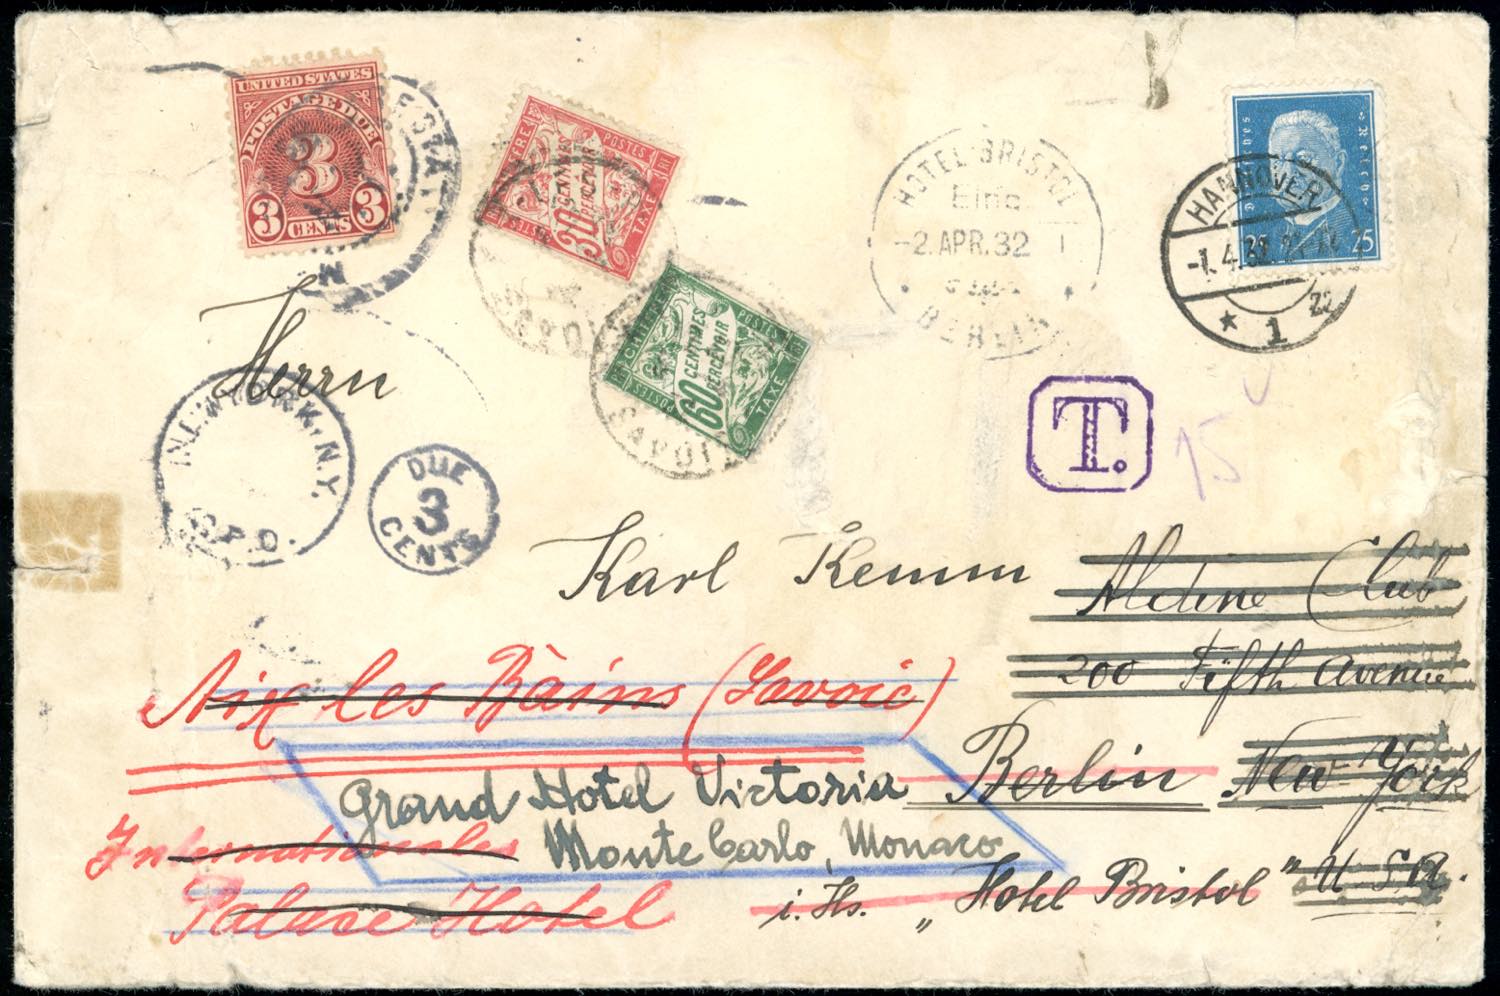 UNITED STATES
POSTAGE DUE
3
3 CENTS 3
POSTES
30 CENTIMES
À PERCEVOIR
TAXE
POSTES
60 CENTIMES
À PERCEVOIR
TAXE
POSTES
SAVOIE
HOTEL BRISTOL
Eing
-2. APR. 32
BERLIN
Deutsches Reich
25 25
HANNOVER
-1.4.32.
* 1
T.
15
NEW YORK, N.Y.
G.P.O.
DUE
3
CENTS
Herrn
Karl Kemm
Aldine Club
200 Fifth Avenue
Berlin New York
i. Hs. „Hotel Bristol" U.S.A.
Aix les Bains (Savoie)
Grand Hotel Victoria
Monte Carlo, Monaco
Internationales
Palace Hotel